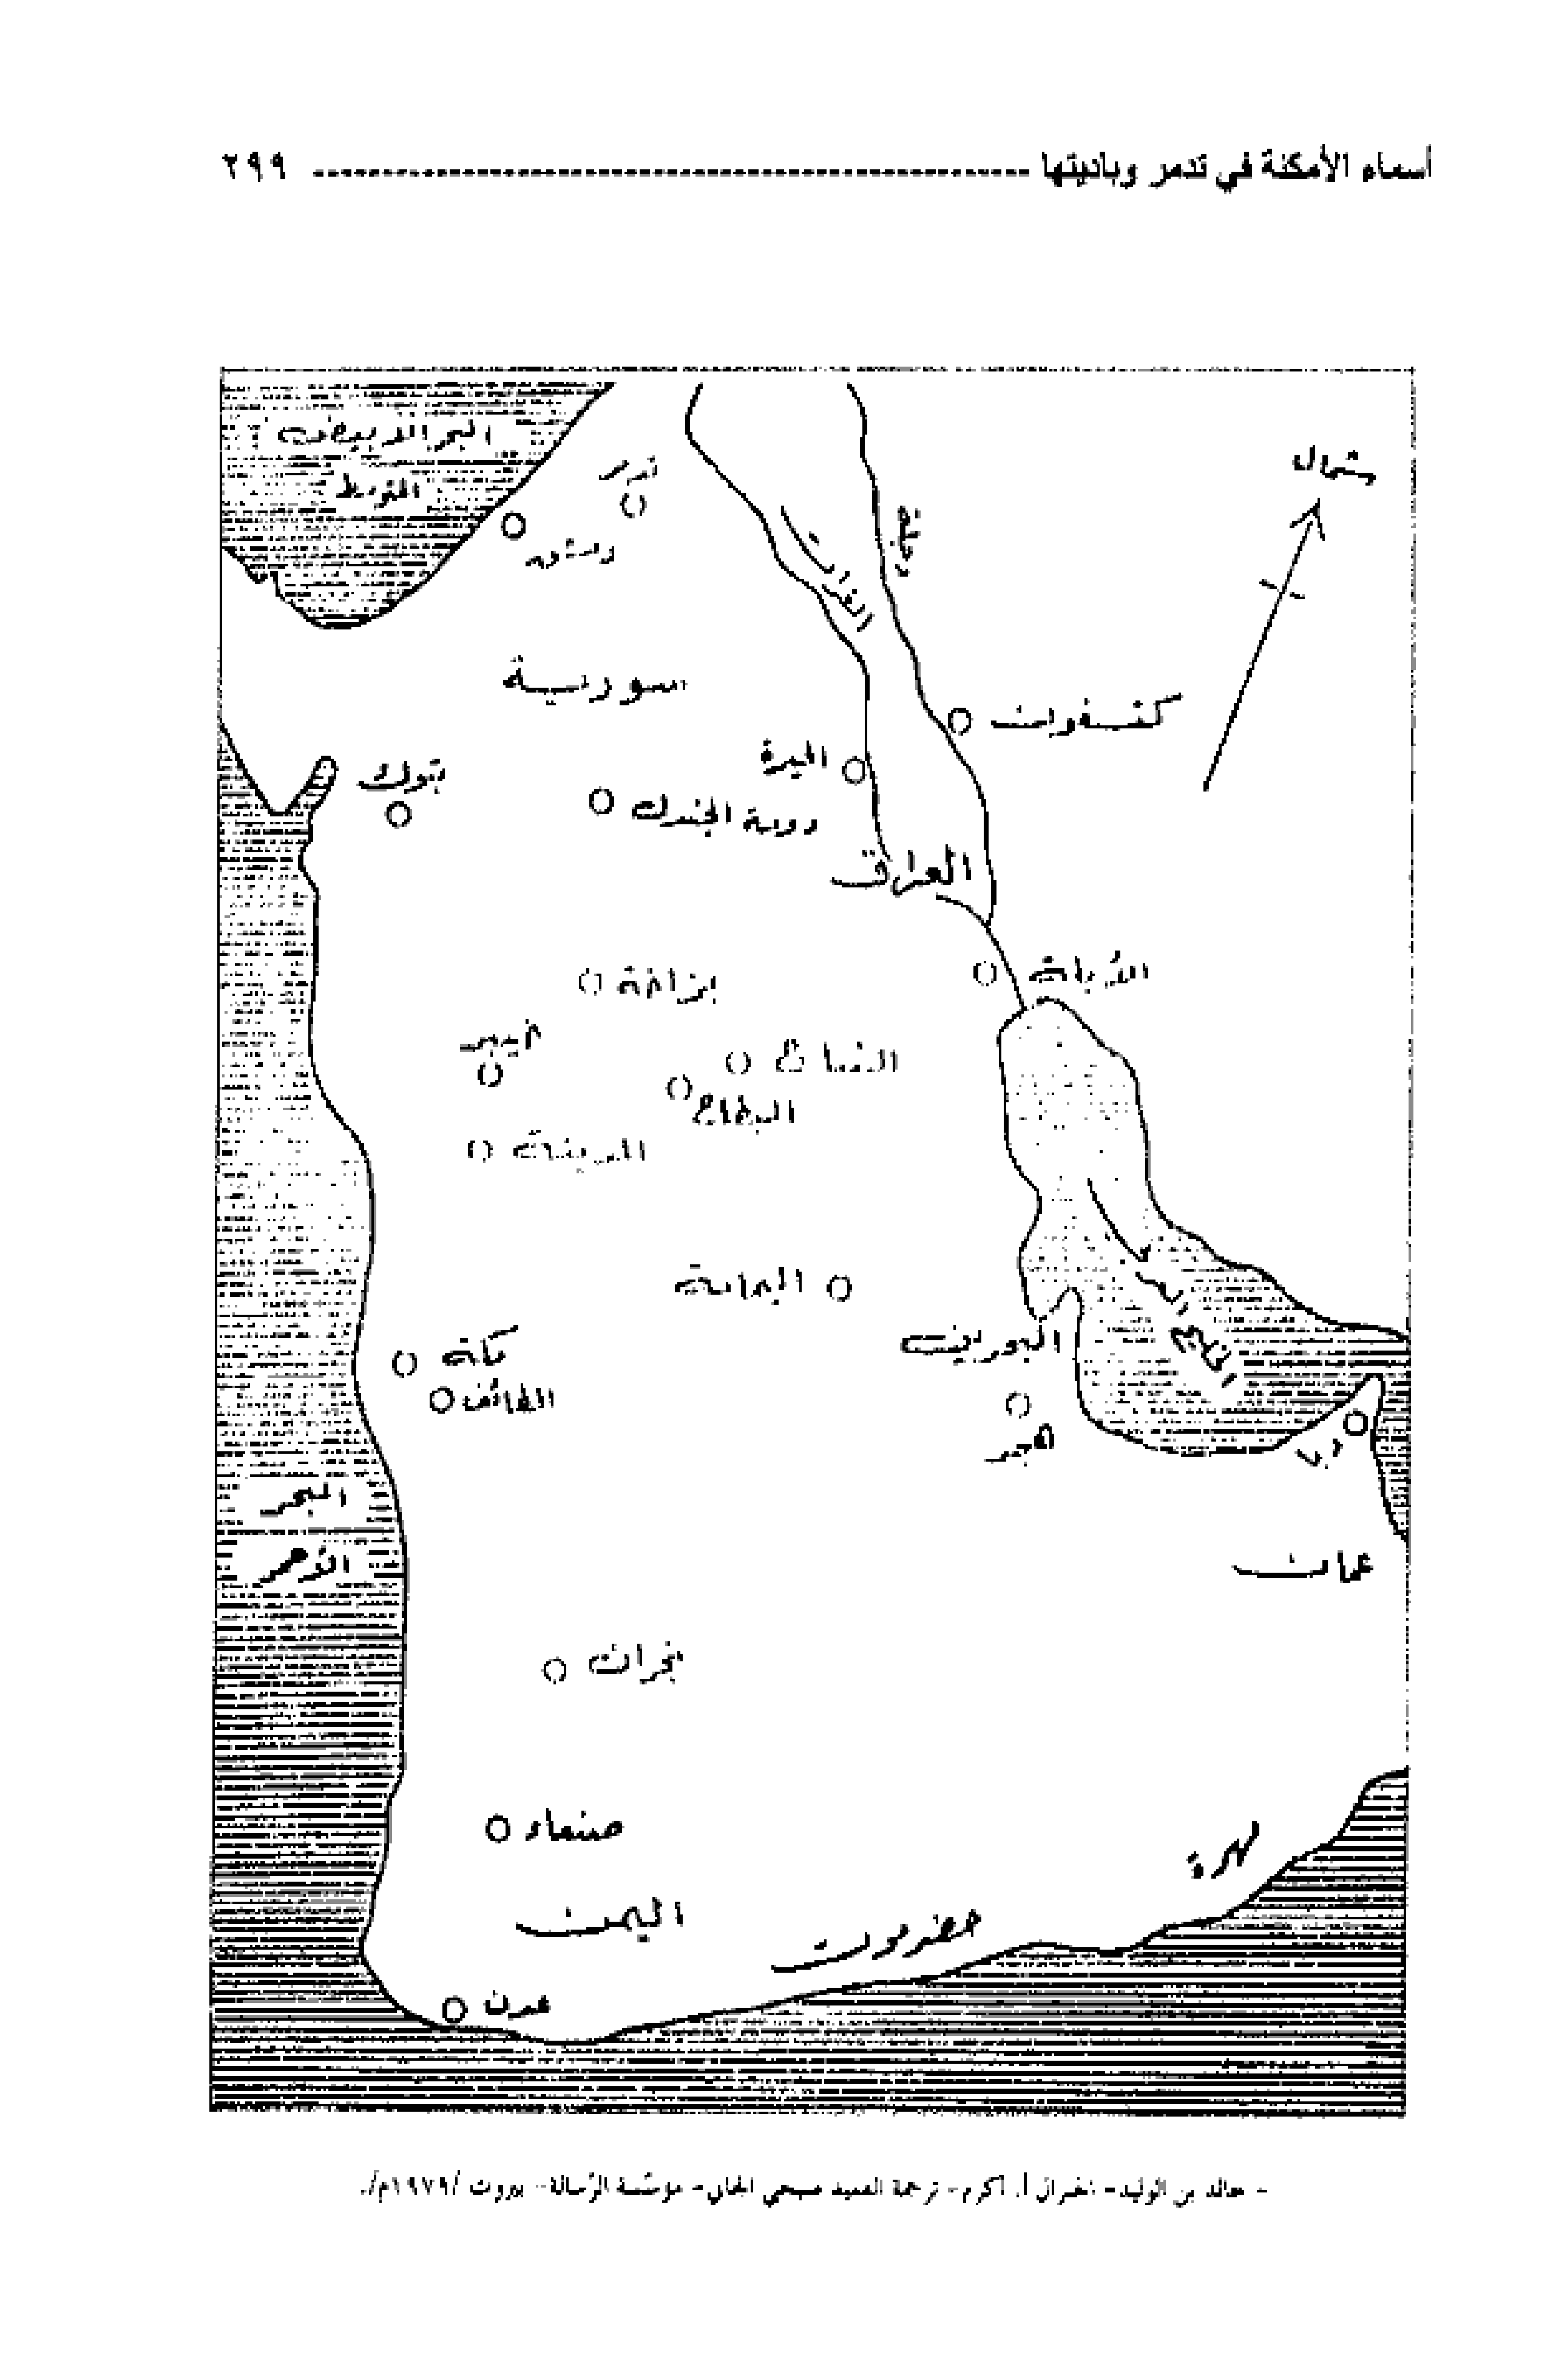 أسماء الأمكنة في تدمر وباديتها ---------- ٢٩٩
البحر الأبيض
المتوسط
تدمر
شمال
دمشق
دجلة
الفرات
سورية
الحيرة
تبوك
دومة الجندل
العراق
الأبلة
بزاخة
خيبر
النباج
البطاح
المدينة
اليمامة
الخليج
البحرين
مكة
الطائف
هجر
دبا
البحر
الأحمر
عمان
نجران
صنعاء
مهرة
اليمن
حضرموت
عدن
- خالد بن الوليد - الجنرال أ. أكرم - ترجمة العميد صبحي الجابي - مؤسسة الرسالة - بيروت /١٩٧٩م/.